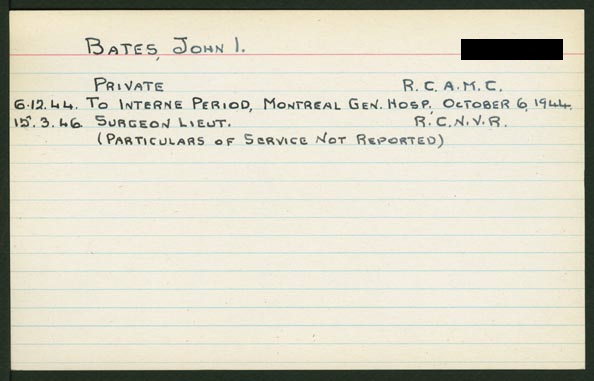 BATES, JOHN I.
PRIVATE R.C.A.M.C.
6.12.44. TO INTERNE PERIOD, MONTREAL GEN. HOSP. OCTOBER 6, 1944.
15.3.46. SURGEON LIEUT. R.C.N.V.R.
(PARTICULARS OF SERVICE NOT REPORTED)